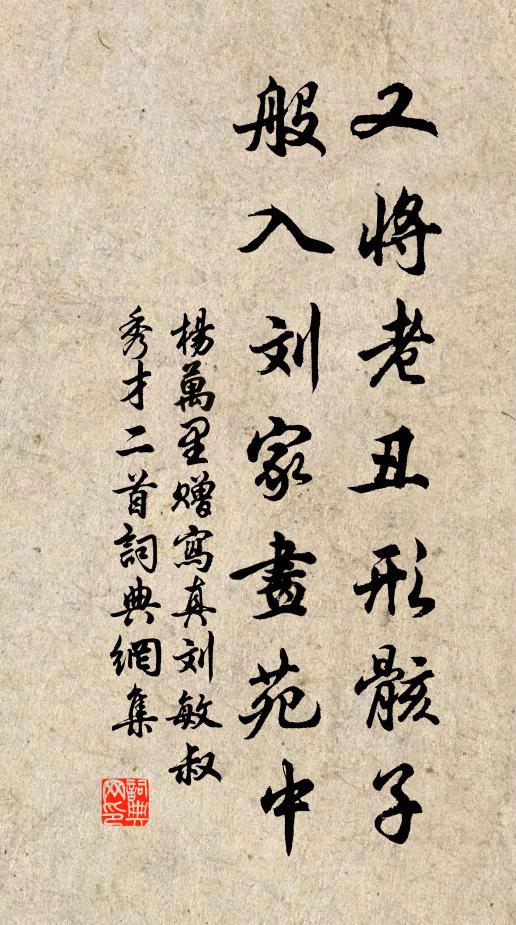 又将老丑形骸子
般入刘家畫苑中
楊萬里赠寫真刘敏叔
秀才二首詞典網集
詞典
网印